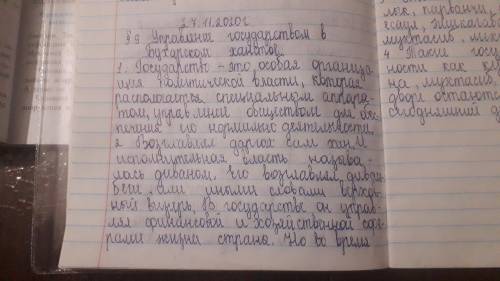 27.11.2020г
§9 Управление государством в
Бухарском ханстве.
1. Государство - это, особая организа
ция политической власти, которая
располагает специальным аппара-
том, управление обществом для обес
печения его нормально деятельности,
2 Возглавлял даргох сам хан. И
исполнительная власть называ-
лась диваном, его возглавлял диван
беги или иными словами верхов
ный визирь. В государстве он управ
лял финансовой и хозяйственной сфе
рами жизни страна. Но во время
лек, парванчи,
есаул, шукалат
мухтасиб, мих
4 Такие госу
ности как
на, мухтасиб,
дворе остаются
сегодняшний д